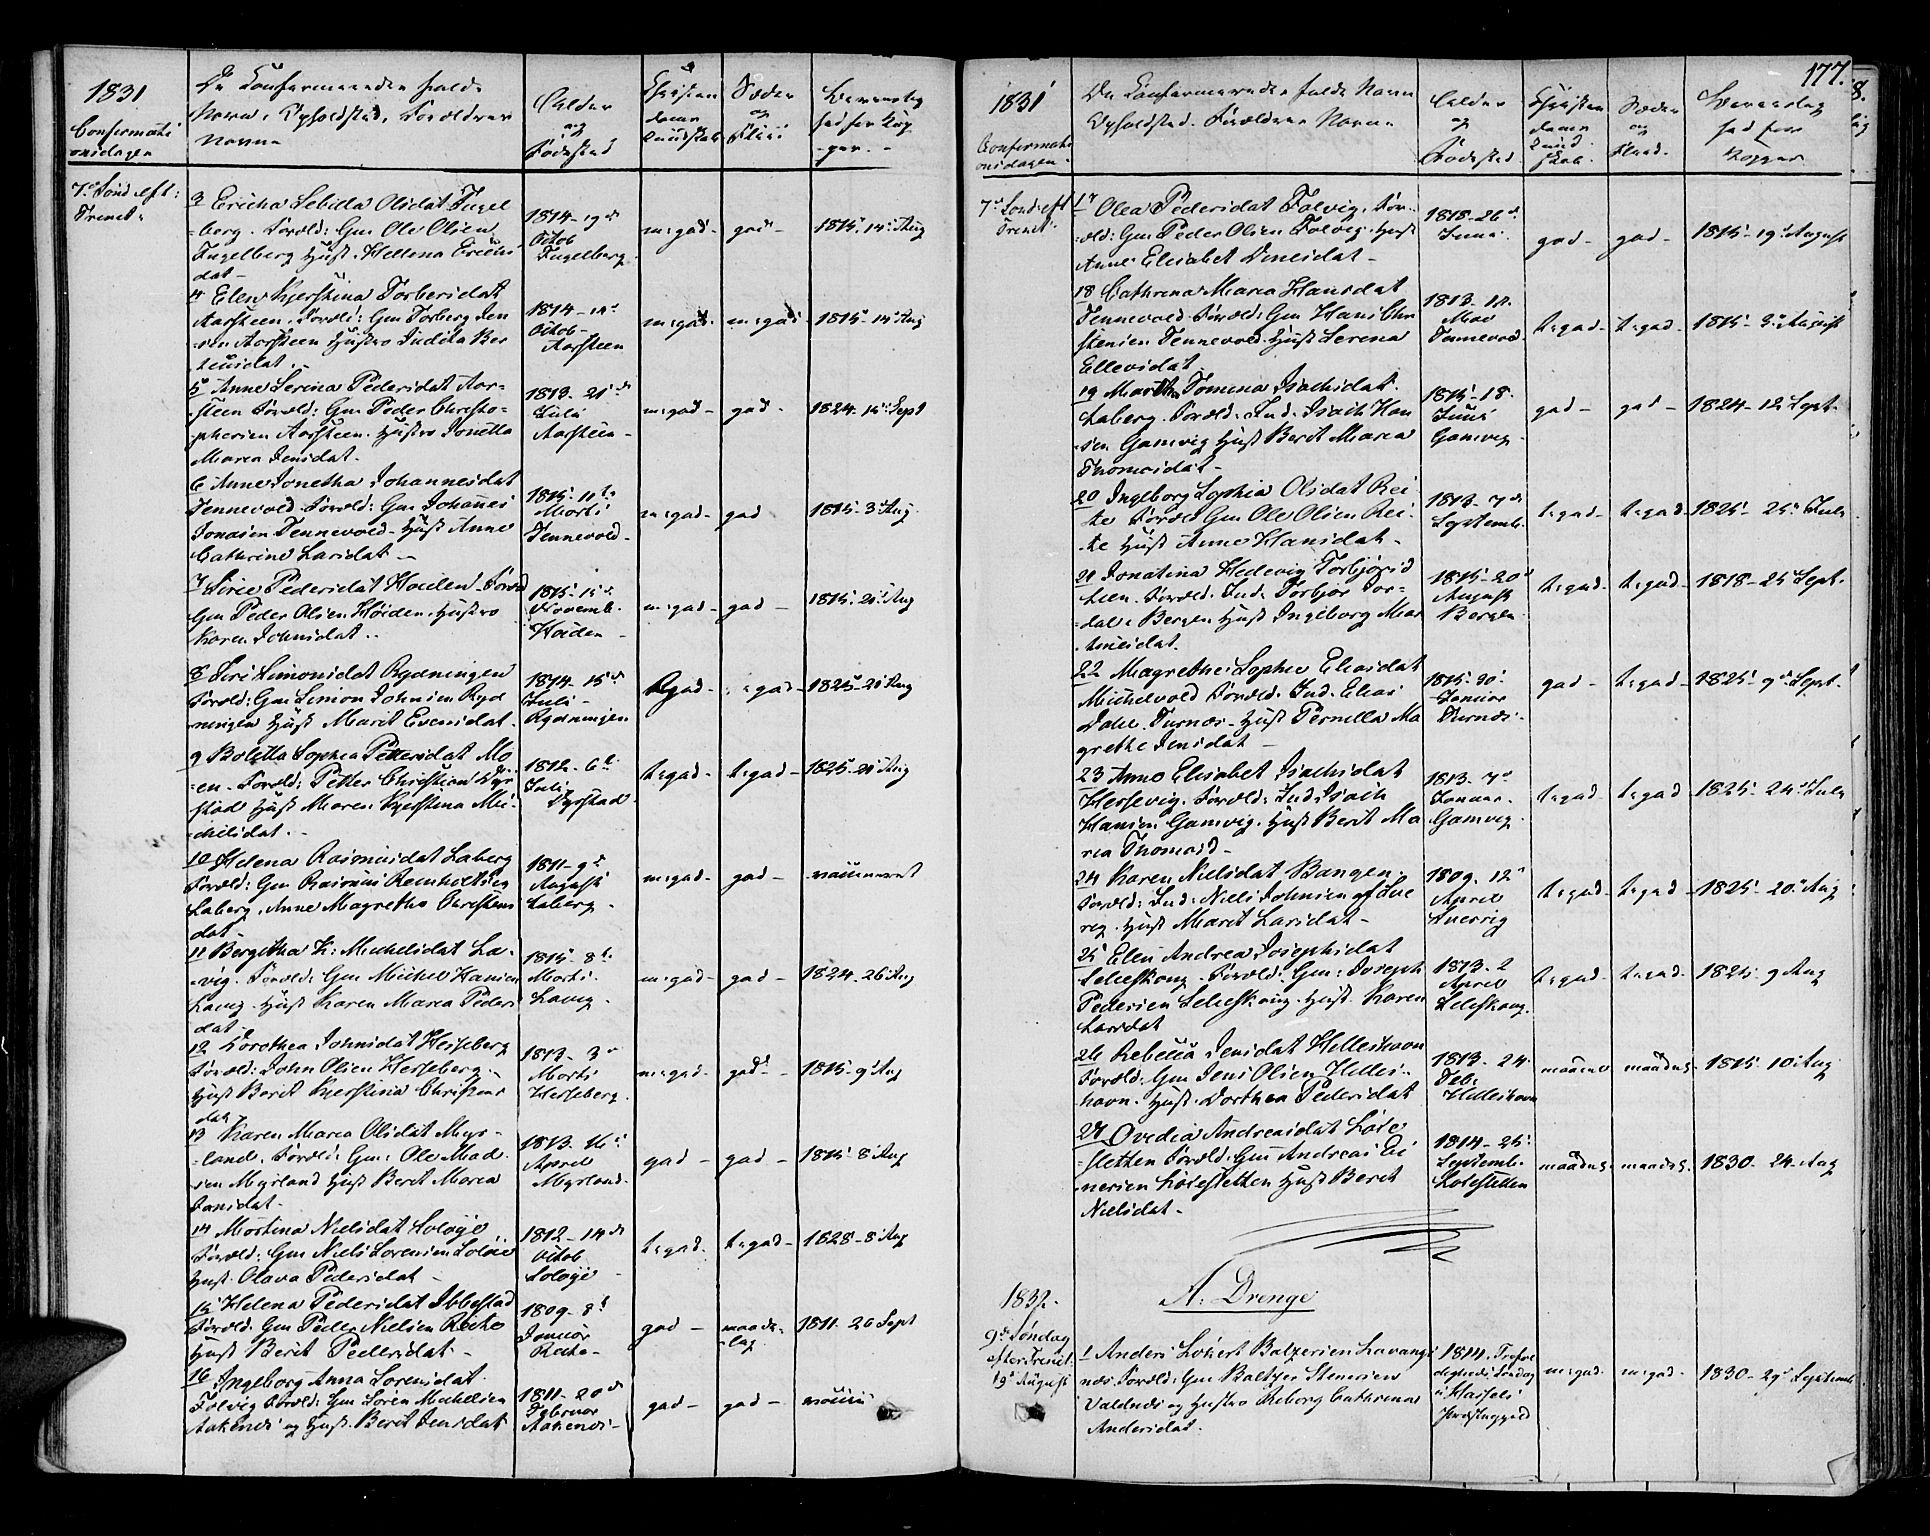 1831
Confermati
onsdagen
De Confermerendes fulde
Navn, Opholdstæd, Forældres
Navne
Alder
og
Fødested
Christen
doms
Kundskab
Sæder
og
Flid
7de Sønd. eft:
Trenit:
3 Ericha Sebilla Olsdat Fugel
=berg. Foræld: Gm Ole Olsen
Fugelberg Hust. Hellena Erichs
dat-
1814-19de
Octob
Fugelberg
m:gad- gad- 1815-14de Aug
4 Elen Kjerstina Torbersdat
Aarsteen. Foræld: Gm Torberg Jen
sen Aarsteen Hustro Judita Ber
teusdat.
1814-
Octob-
Aarsteen
m:gad- m:gad 1815-14de Aug
5 Anne Serina Pedersdat Aar-
steen Foræld: Gm Peder Christo-
phersen Aarsteen. Hustro Jonetta
Maria Jensdat.
1813-21de
Juli
Aarsteen-
m:gad- gad- 1824- Sept
6 Anne Jonetha Johannesdat
Tennevold Foræld: Gm Johannes
Jonasen Tennevold- Hust Anne
Cathrine Larsdat-
1815-11te
Marti
Tennevold-
m:gad- gad 1815-3de Aug
7 Sirie Pedersdat Høiden Foræld
Gm Peder Olsen Høiden. Hustro
Karen Johnsdat..
1815-15de
Novemb.
Høiden-
m:gad- gad- 1815-21de Aug
8 Siri Simonsdat Rydningen
Foræld: Gm Simon Johnsen Ryd
ningen Hust Maret Evensdat.
1814-15de
Juli-
Rydningen
gad- gad- 1825-21de Aug
9 Boletta Sophia Pettersdat Mo
=en. Foræld: Petter Christian Dyr
stad Hust Maren Kjerstina Mi-
chelsdat.-
1812-6te
Juli
Dyrstad
t:gad- t:gad- 1825-21de Aug
10 Helena Rasmusdat Laberg
Foræld: Gm Rasmus Reinholtsen
Laberg, Anne Magretha Christens
dat-
1811-9de
August
Laberg-
m:gad- gad-
11 Bergitha K: Michelsdat La-
vig. Foræld: Gm Michel Hansen
Lavig. Hust Karen Maria Peders
dat-
1815-8de
Marti-
Lavig-
m:gad- gad- 1824-26 Aug
12 Dorothea Johnsdat Hesseberg
Foræld: John Olsen Hesseberg.
Hust Berit Kjerstina Christens
dat
1813-3de
Marti
Hesseberg.
m:gad- gad- 1815-9de Aug
13 Karen Maria Olsdat Myr-
=land. Foræld: Gm: Ole Mad
sen Myrland Hust Berit Maria
Jonsdat-
1813-16de
April
Myrland.
gad- gad- 1815-8de Aug
14 Martina Nielsdat Soløye
Foræld: Gm Niels Lorensen Soløie
Hust. Olava Pedersdat-
1812-14de
Octob
Soløye-
t:gad- t:gad- 1828-8de Aug
15 Helena Pedersdat Ibbestad
Foræld: Gm Peder Nielsen Rothe
Hust Berit Pedersdat-
1809-8de
Januar
gad- maade
-lig 1811-20 Sept
16 Ingeborg Anna Sorensdat
Folvig Foræld: Gm Søren Michelsen
Aakenæs og Hust. Berit Jensdat
1811-20de
Februar
Aakenæs-
gad- gad-
177.
1831
Confermati
onsdagen.
De Confermerendes fulde Navn
Opholdstæd. Forældres Navne
Alder
og
Fødested
Christen
doms
Kund
skab.
Sæder
og
Flid.
7de Sønd. eft
Trenit:
17 Olea Pedersdat Folvig. For-
=æld: Gm Peder Olsen Folvig. Hust
Anne Elisabet Danielsdat-
1815-26de
Juni.
gad- gad- 1815-19de August
18 Cathrena Maria Hansdat
Tennevold Foræld: Gm Hans Chri
stensen Tennevold. Hust Serena
Ellevsdat
1813-12.
Mai
Tennevold
t:gad- t:gad- 1815-3de August
19 Marthe Tomina Isachsdat
Laberg. Foræld: Ind. Isach Han
sen Gamvig Hust Berit Maria
Thomasdat-
1815-18.
Juni
Gamvig-
gad- gad- 1824-12 Sept-
20 Ingeborg Sophia Olsdat Rei-
te Foræld Gm Ole Olsen Rei-
te Hust Anne Hansdat-
1813-7de
Septemb.
t:gad- t:gad- 1825-25de Juli
21 Jonatina Hedevig Torbjørns
Foræld. Ind. Torbjør Tor-
dal i Bergen Hust Ingeborg Mar
tinusdat.
1815-20de
August
Bergen
t:gad- t:gad- 1818-25 Sept.
22 Magrethe Sophie Eliasdat
Michelvold Foræld. Ind. Elias
Dahl. Turnæs- Hust Pernella Ma
grethe Jensdat-
1815-30.
Januar
Turnæs-
gad- t:gad- 1825-9de Sept-
23 Anne Elisabet Isachsdat
Hessevig. Foræld: Ind. Isach
Hansen Gamvig. Hust Berit Ma
ria Thomasd-
1813-7de
Januar.
Gamvig-
t:gad- t:gad 1825-24de Juli
24 Karen Nielsdat Bangen.
Foræld: Ind: Niels Johnsen af Sve
Hust. Maret Larsdat-
1809.12de
April
t:gad- t:gad- 1825-20de Aug
25 Elen Andrea Josephsdat
Selleskoug. Foræld: Gm: Joseph
Pedersen Selleskoug. Hust. Karen
Larsdat
1813-2
April
Selleskoug.
t:gad- t:gad- 1825-9 Aug
26 Rebecca Jensdat Helleshavn
Foræld: Gm Jens Olsen Helles-
havn. Hust. Dorthea Pedersdat
1813-24
Feb.
Helleshavn
1815-10de Aug
27 Ovedia Andreasdat Løve
sletten Foræld: Gm Andreas Ei
nersen Løvesletten Hust Berit
Nielsdat-
1814-25
Septemb.
Løvesletten
maadel. maadel. 1830-24 Aug
A. Drenge
1832.
9de Søndag
efter Trenit.
19de August
1 Anders Lokert Baltzersen Lavangs
næs Foræld: Gm Baltzer Stensen
Valdnæs og Hustro Reberg Cathrena
Andersdat.
1814.
m:gad- m:gad- 1830-29de Septemb